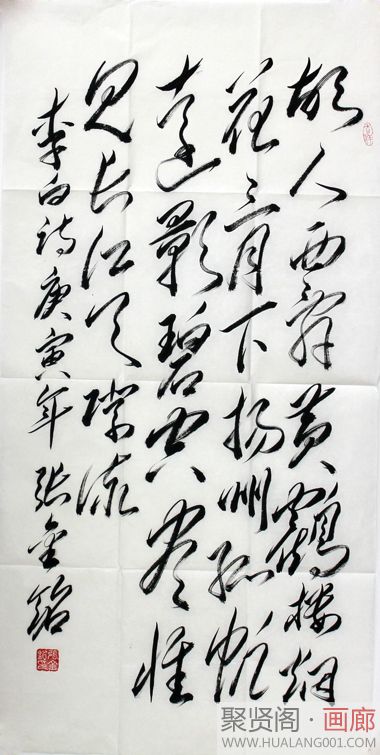 故人西辞黄鹤楼烟
花三月下扬州孤帆
远影碧空尽惟
见长江天际流
李白诗庚寅年 张金
聚贤阁·画廊
WWW.HUALANG001.COM